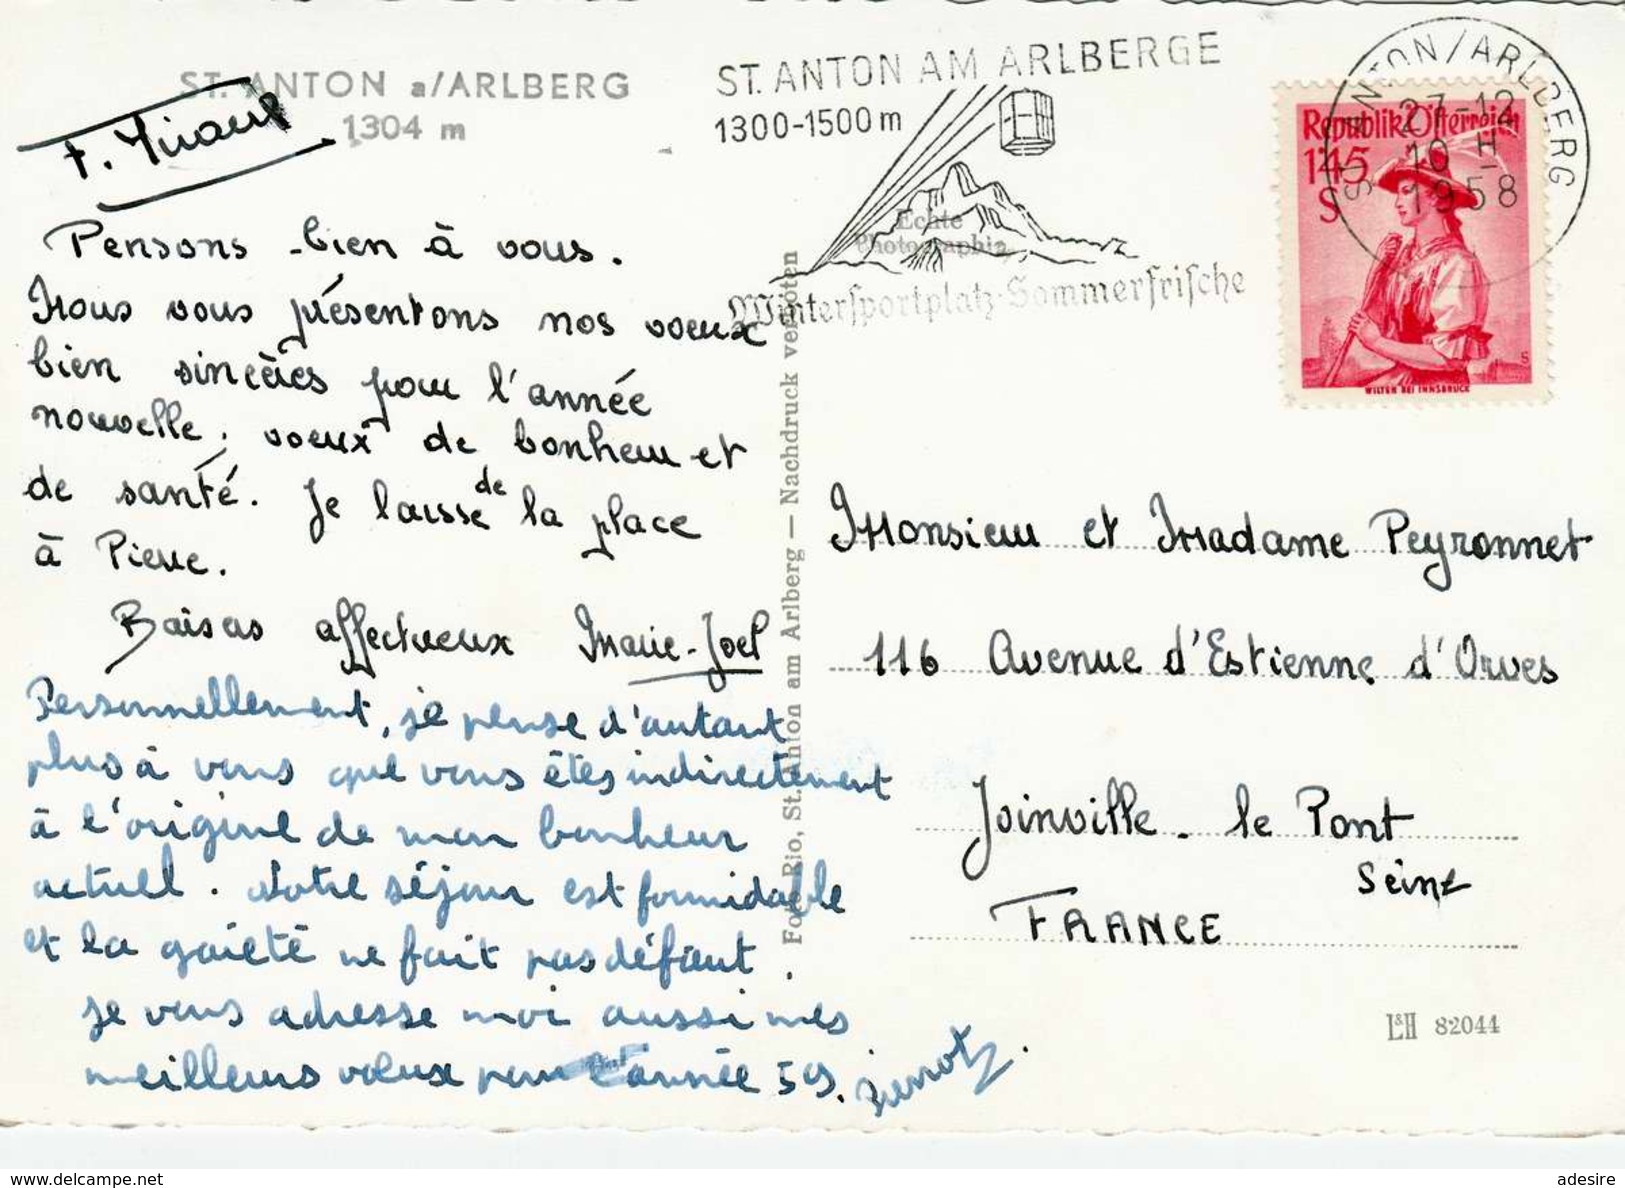 ST. ANTON a/ARLBERG
1304 m
Pensons bien à vous.
Nous vous présentons nos voeux
bien sincères pour l'année
nouvelle, voeux de bonheur et
de santé. Je laisse de la place
à Pierre.
Baisers affectueux Marie-Joel
Personnellement, je pense d'autant
plus à vous que vous êtes indirectement
à l'origine de mon bonheur
actuel. Notre séjour est formidable
et la gaieté ne fait pas défaut.
Je vous adresse moi aussi mes
meilleurs voeux pour l'année 59. Pierrot
Foto Rio, St. Anton am Arlberg — Nachdruck verboten
Echte
Photographie
ST. ANTON AM ARLBERGE
1300-1500m
Wintersportplatz-Sommerfrische
ST. ANTON/ARLBERG
27-12
10 H
1958
Republik Österreich
1'45
S
WILTEN BEI INNSBRUCK
Monsieur et Madame Peyronnet
116 Avenue d'Estienne d'Orves
Joinville-le Pont
Seine
FRANCE
L&H 82044
adesire